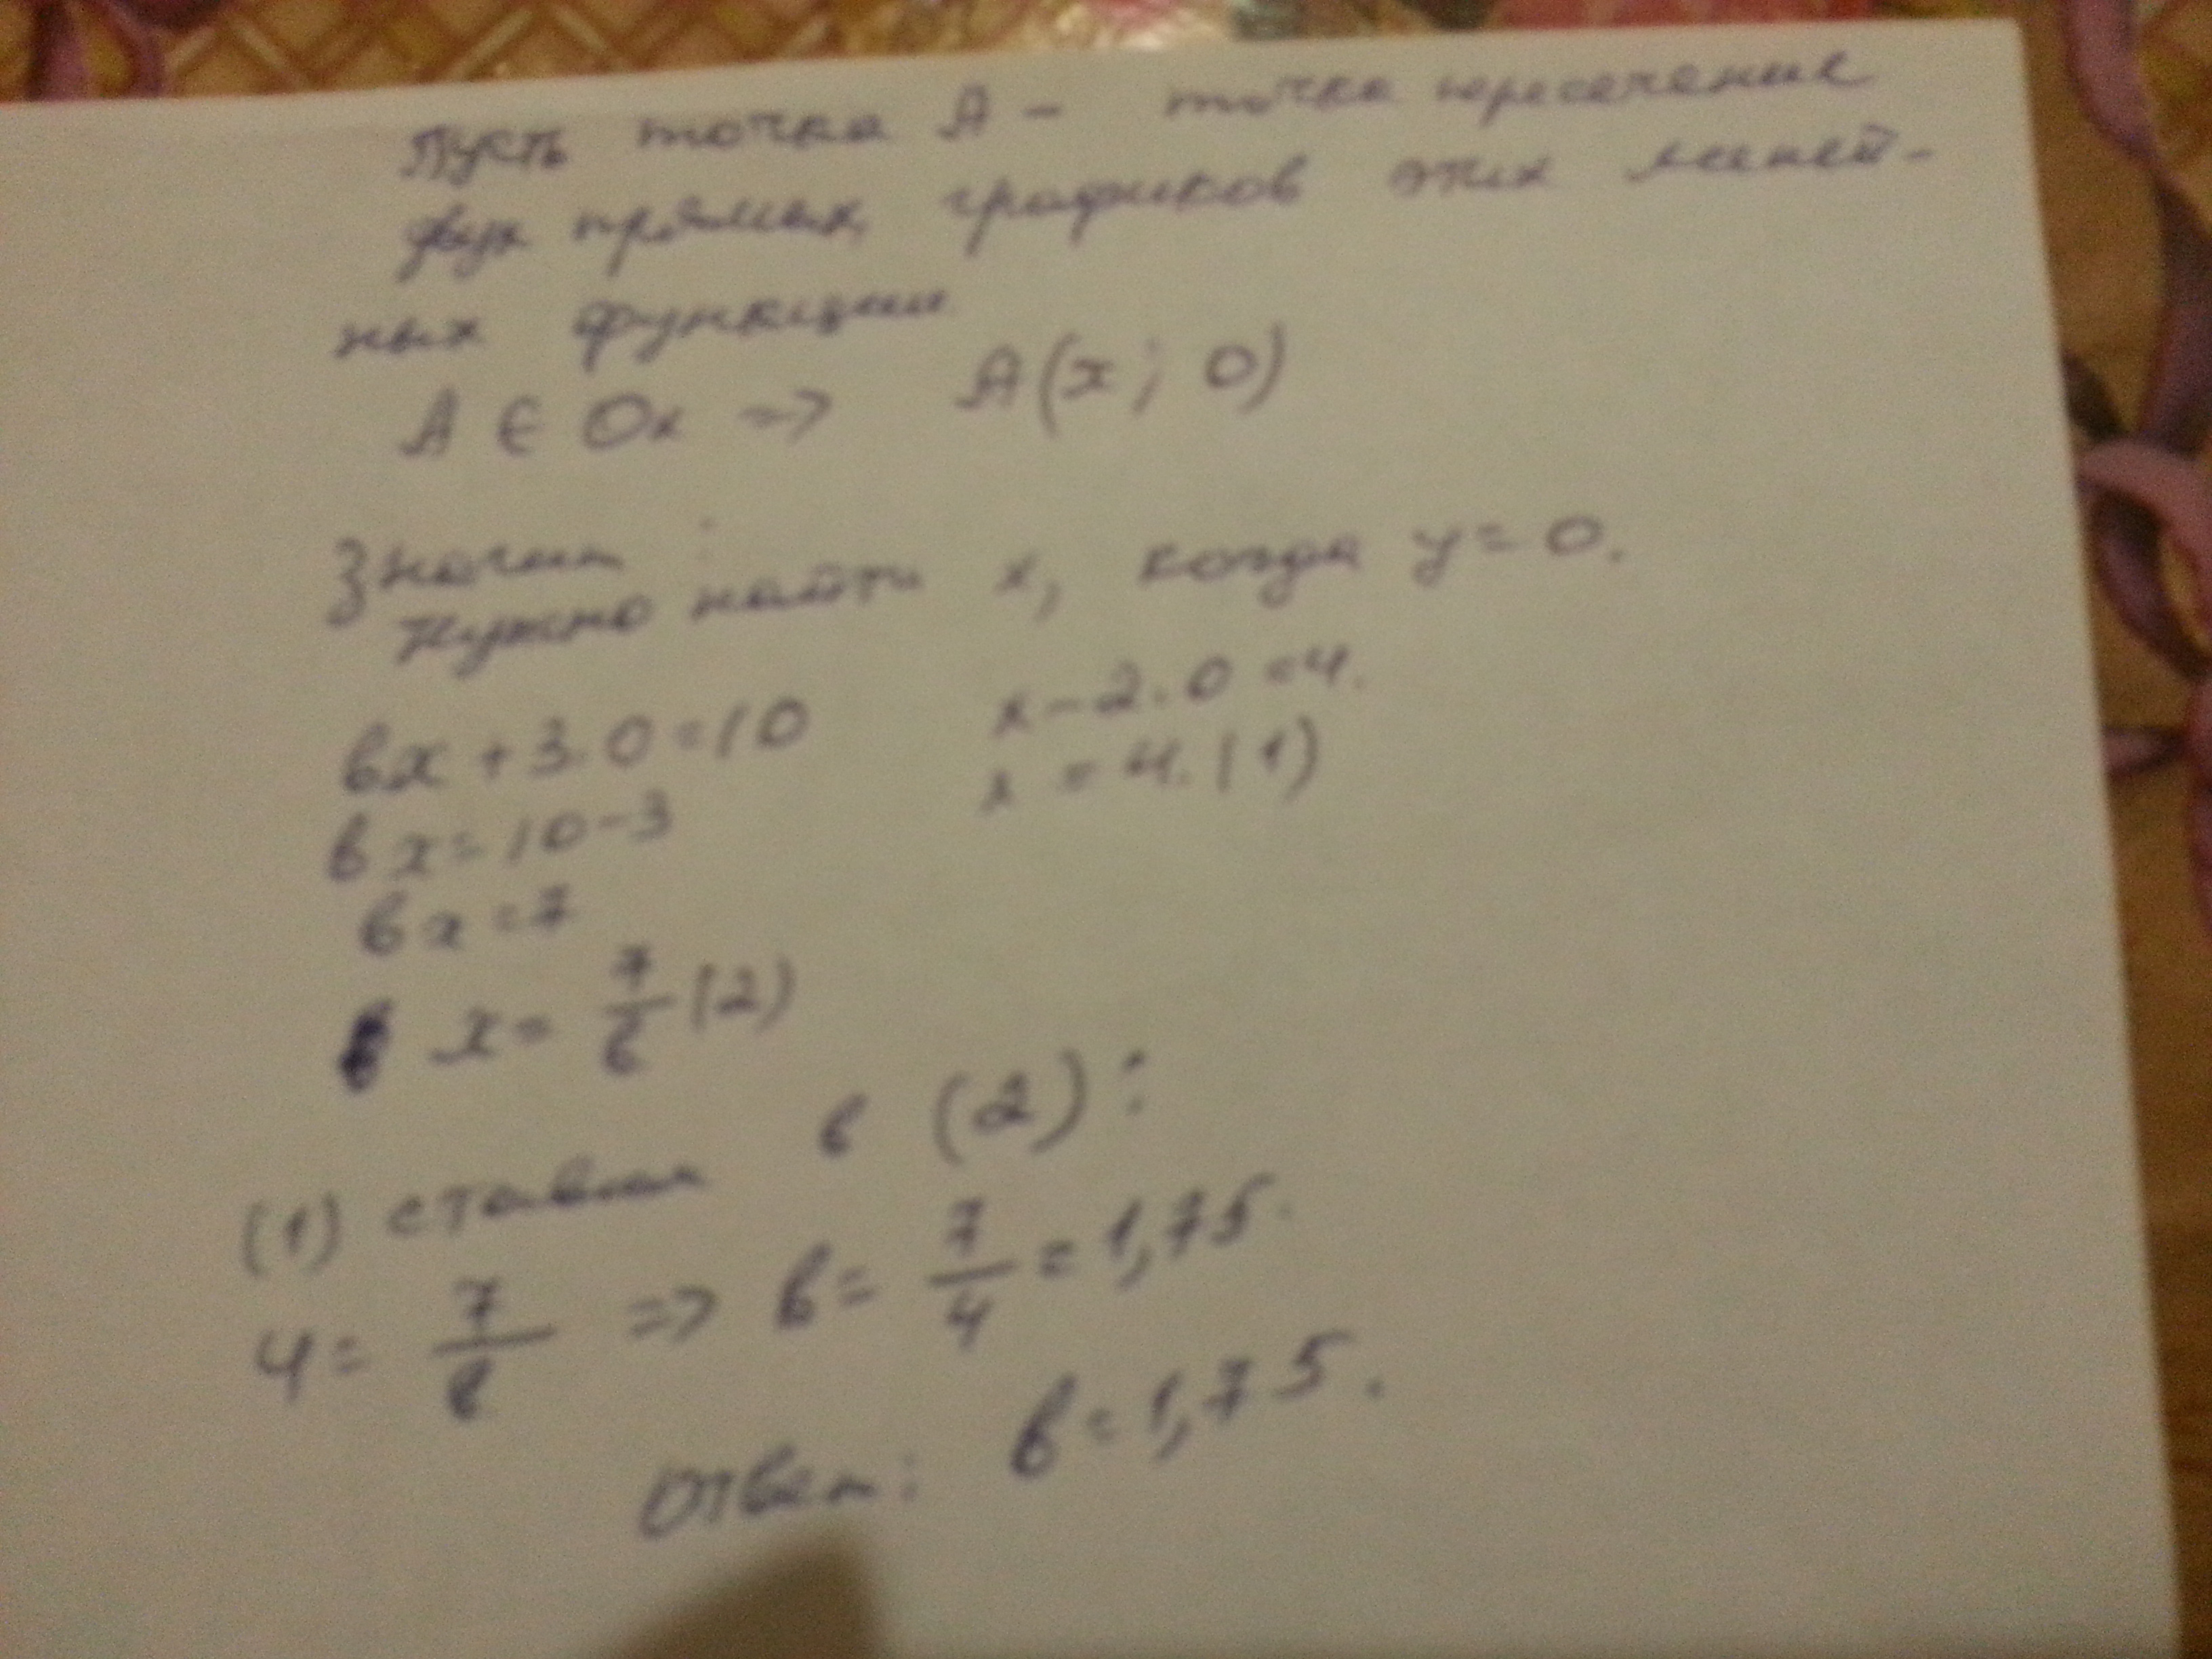 Пусть точка А – точка пересечения
двух прямых, графиков этих линей-
ных функции
А ∈ Ox => A(x; 0)
Значит :
Нужно найти x, когда y = 0.
вx + 3·0 = 10 x – 2·0 = 4.
вx = 10 – 3 x = 4. (1)
вx = 7
x = 7/в (2)
(1) ставим в (2):
4 = 7/в => в = 7/4 = 1,75.
Ответ: в = 1,75.